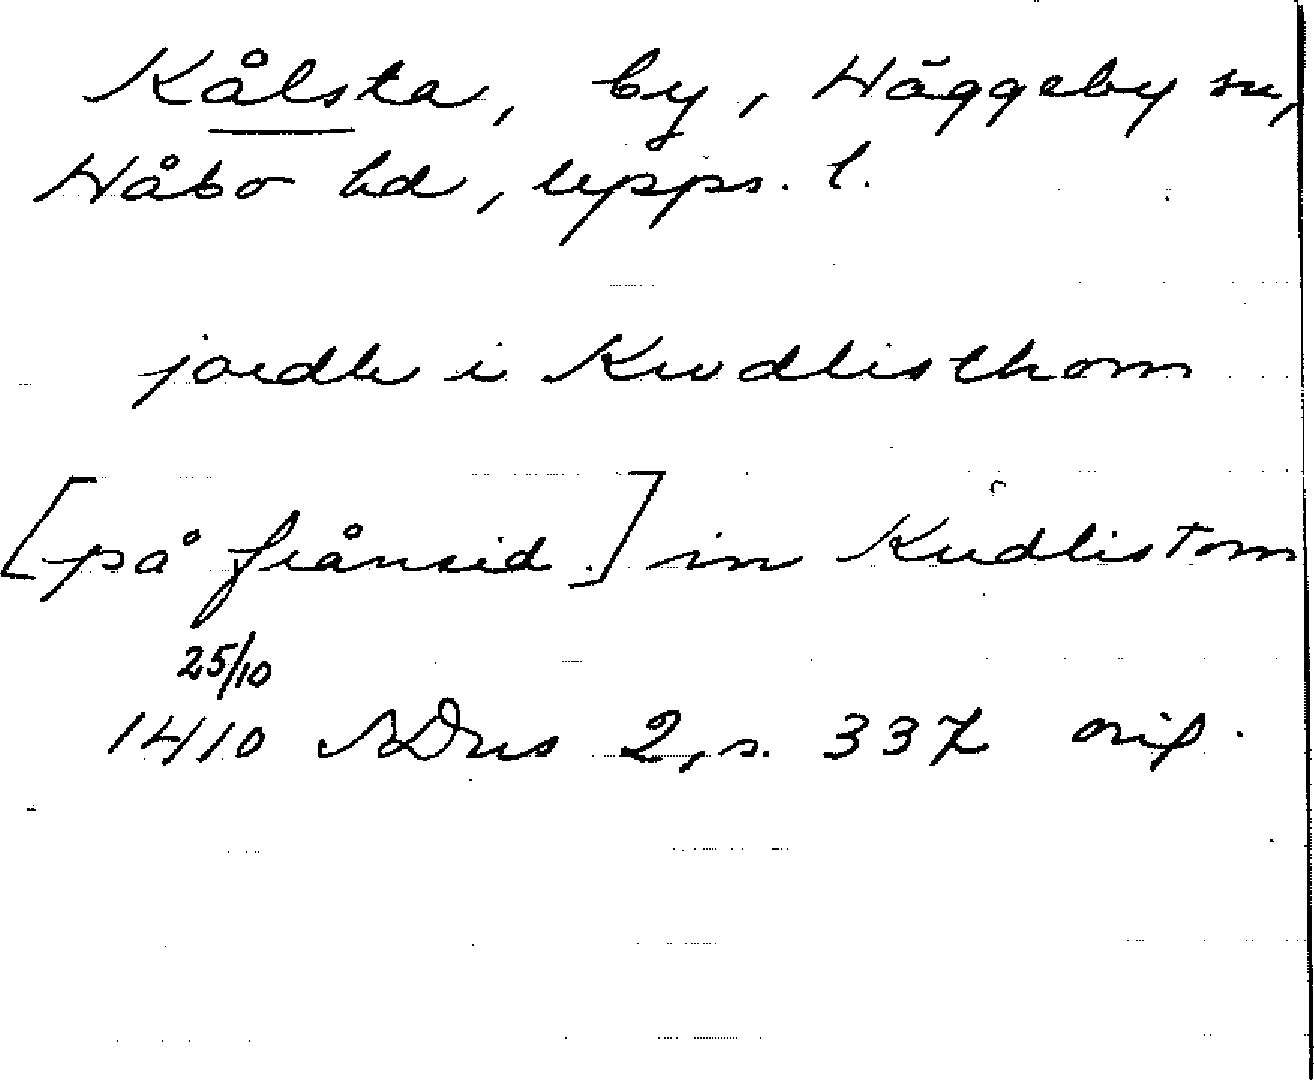 Kålsta, by, Häggeby sn,
Håbo hd, Upps. l.
jordh i Krvdlisthom
[på frånsid.] in Krudlistom
25/10
1410 SDns 2, s. 337 orig.